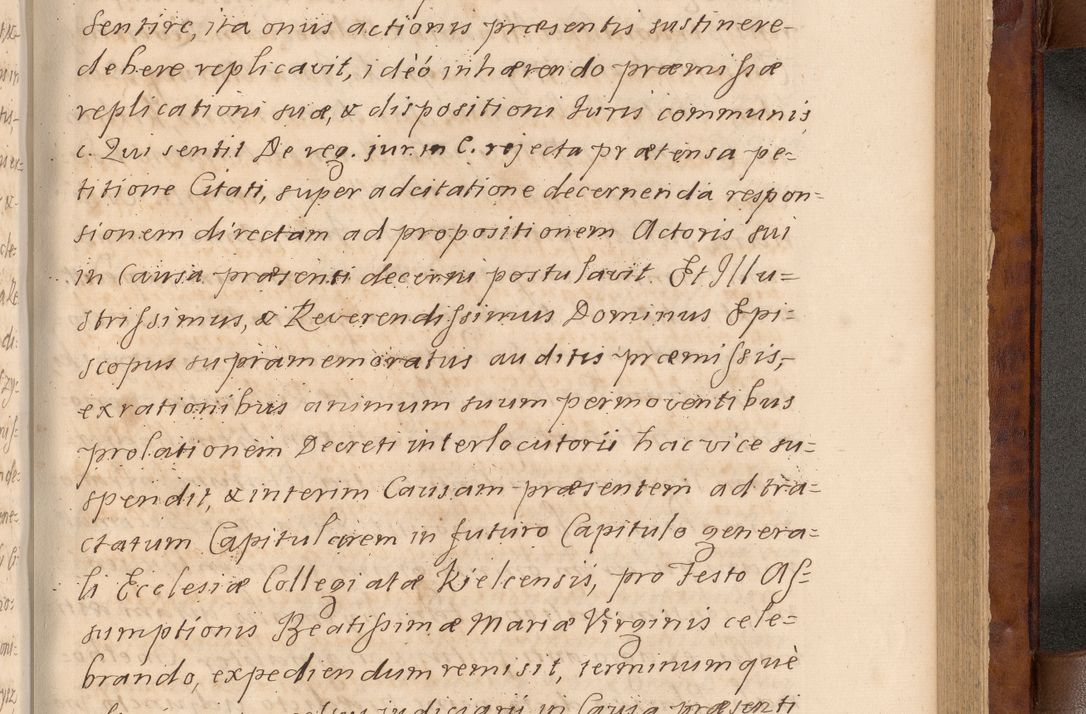 sentire, ita onus actionis præsentis sustinere
debere replicavit, ideó inhærendo præmissæ
replicationi suæ, & dispositioni Iuris communis
c. Qui sentit De reg. jur. in C. rejecta prætensa pe=
titione Citati, super adcitatione decernenda respon=
sionem directam ad propositionem Actoris sui
in Causa præsenti decerni postulavit. Et Illu=
strissimus, & Reverendissimus Dominus Epi=
scopus supramemoratus auditis præmissis,
ex rationibus animum suum permoventibus
prolationem Decreti interlocutorii hac vice su=
spendit, & interim Causam præsentem ad tra=
ctatum Capitularem in futuro Capitulo genera=
li Ecclesiæ Collegiatæ Kielcensis, pro Festo As=
sumptionis Beatissimæ Mariæ Virginis cele=
brando, expediendum remisit, terminumquè
judiciarii in Causa præsenti